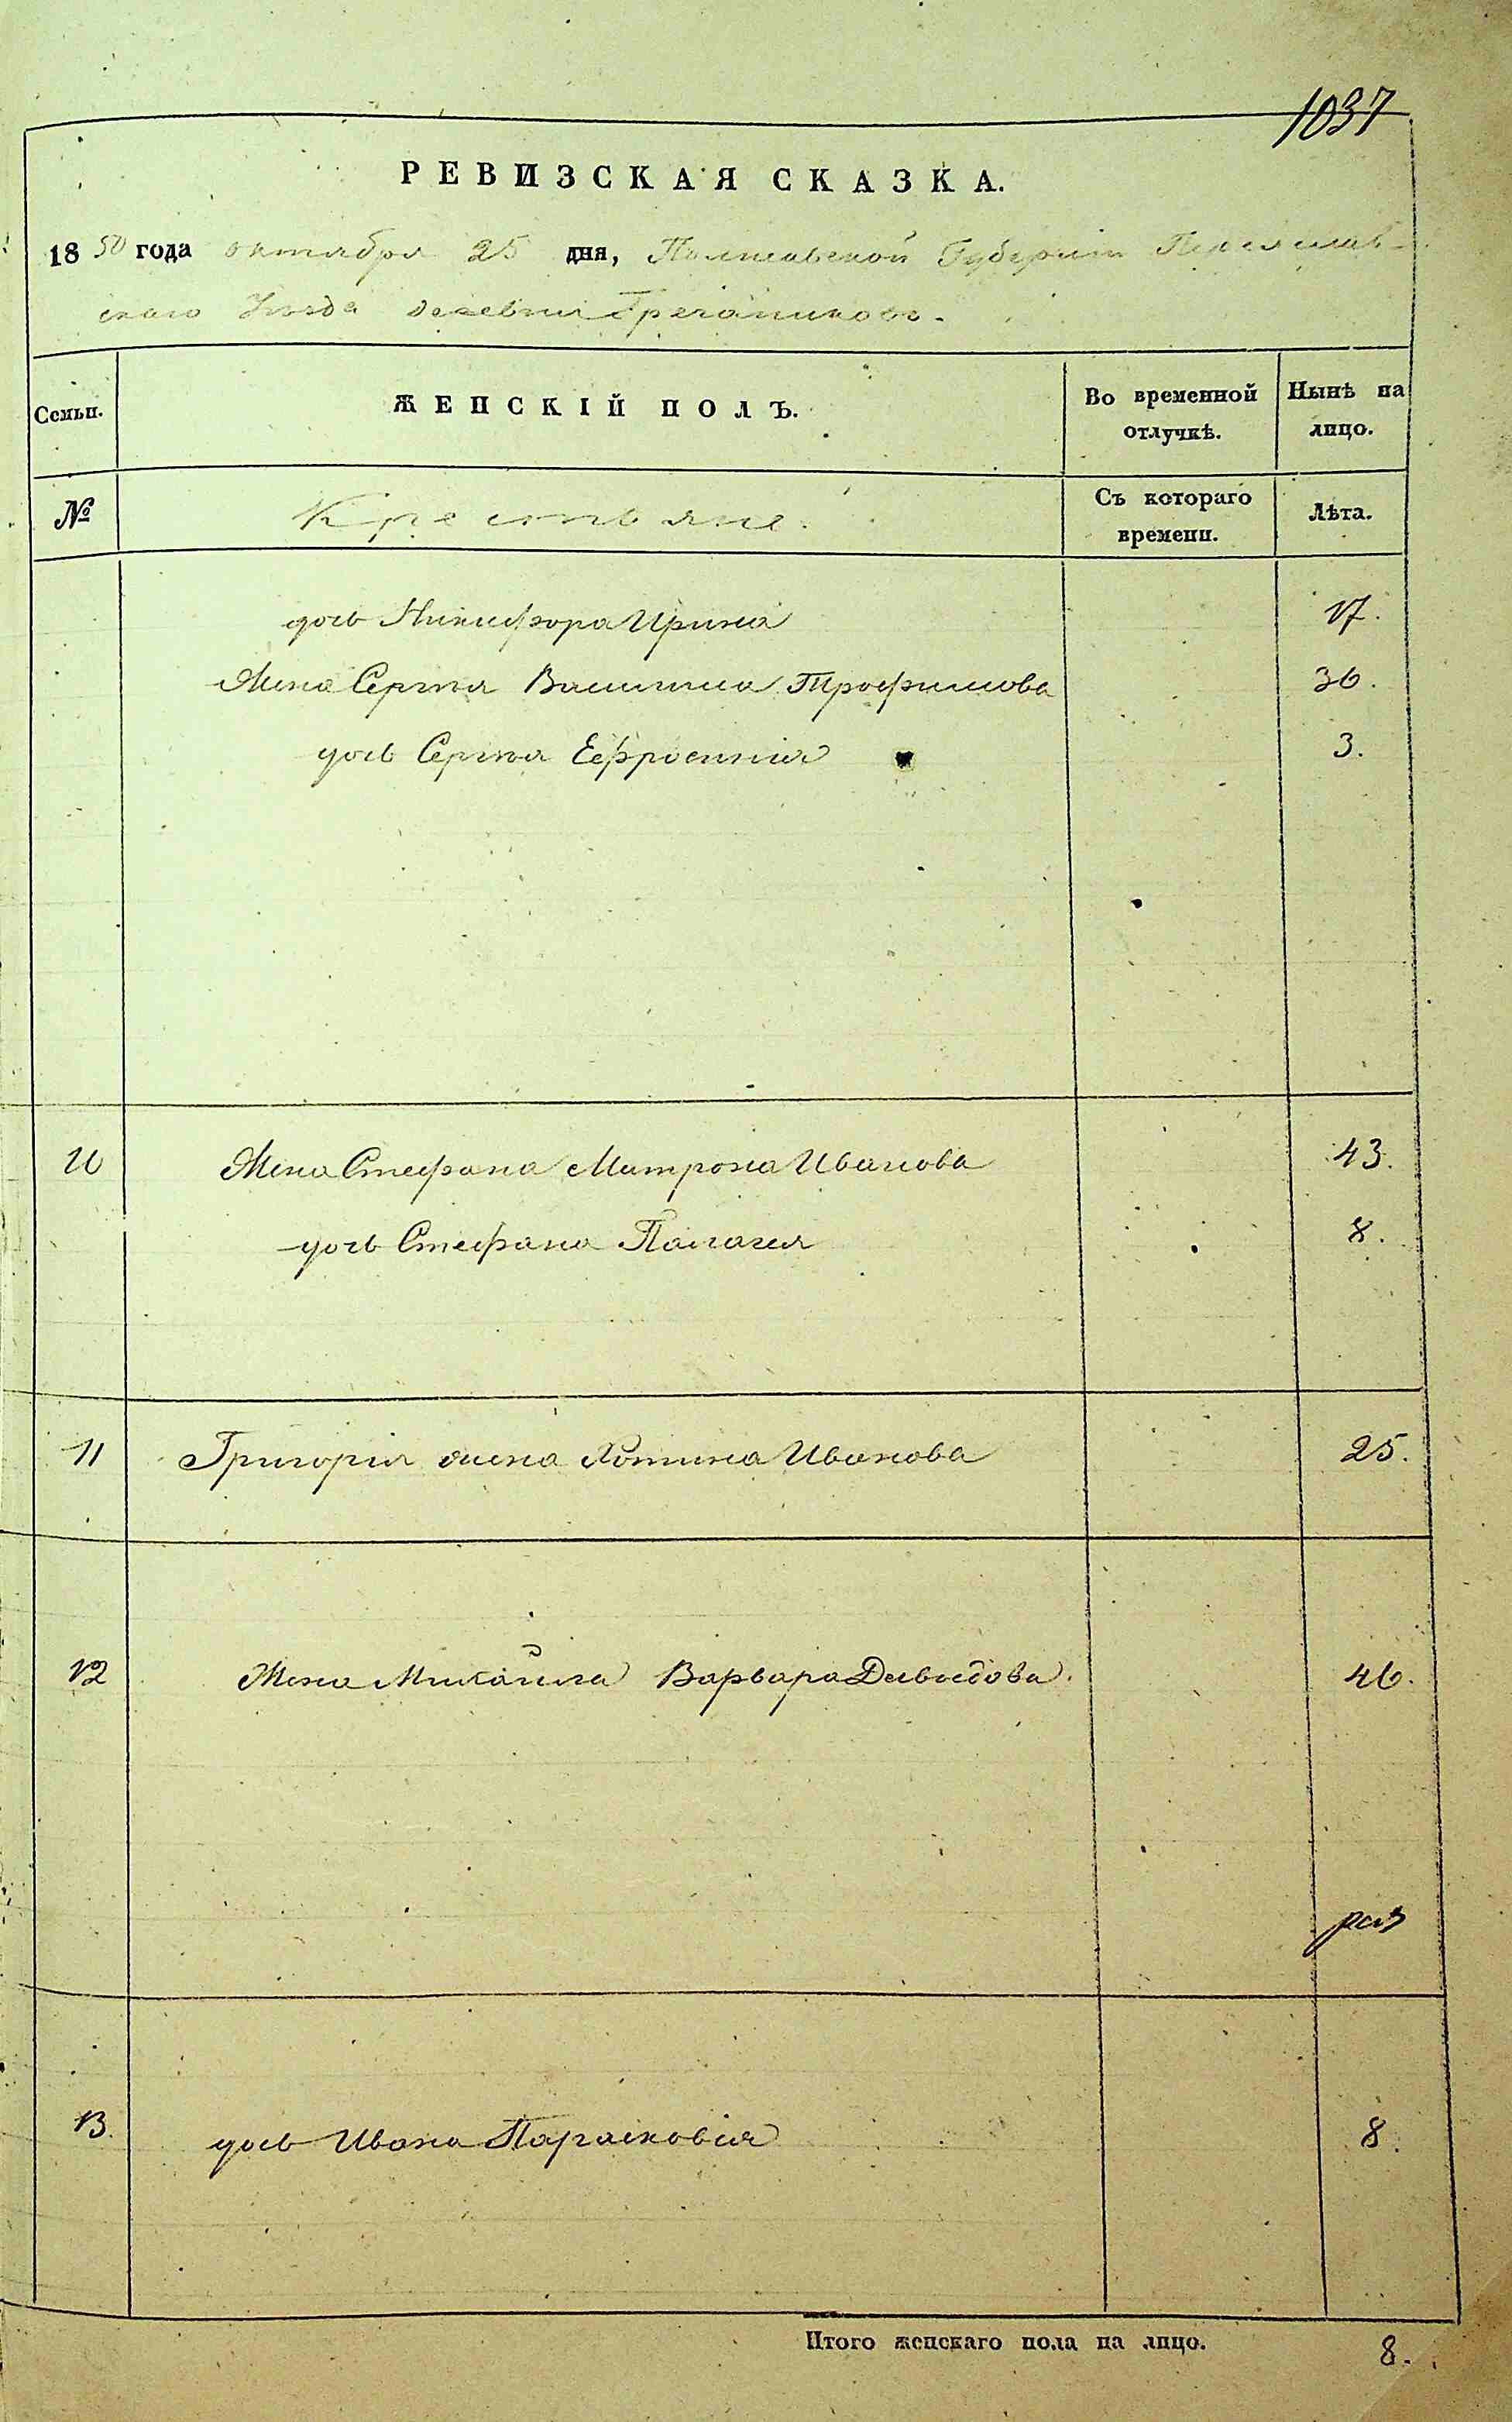 1037
РЕВИЗСКАЯ СКАЗКА.
1850 года октября 25 дня, Полтавской Губернии Переяслав-
скаго Уѣзда деревни Гречаниковъ.
Семьи. ЖЕНСКІЙ ПОЛЪ. Во временной отлучкѣ. Нынѣ на лицо.
№ Крестьяне. Съ котораго времени. Лѣта.
дочь Никифора Ирина 17.
Жена Сергѣя Василиса Трофимова 36.
дочь Сергѣя Ефросинія 3.
10 Жена Стефана Матрона Иванова 43.
дочь Стефана Палагея 8.
11 Григорія жена Хотина Иванова 25.
12 Жена Михайла Варвара Давыдова. 46.
13. дочь Ивана Парасковія 8.
Итого женскаго пола на лицо. 8.